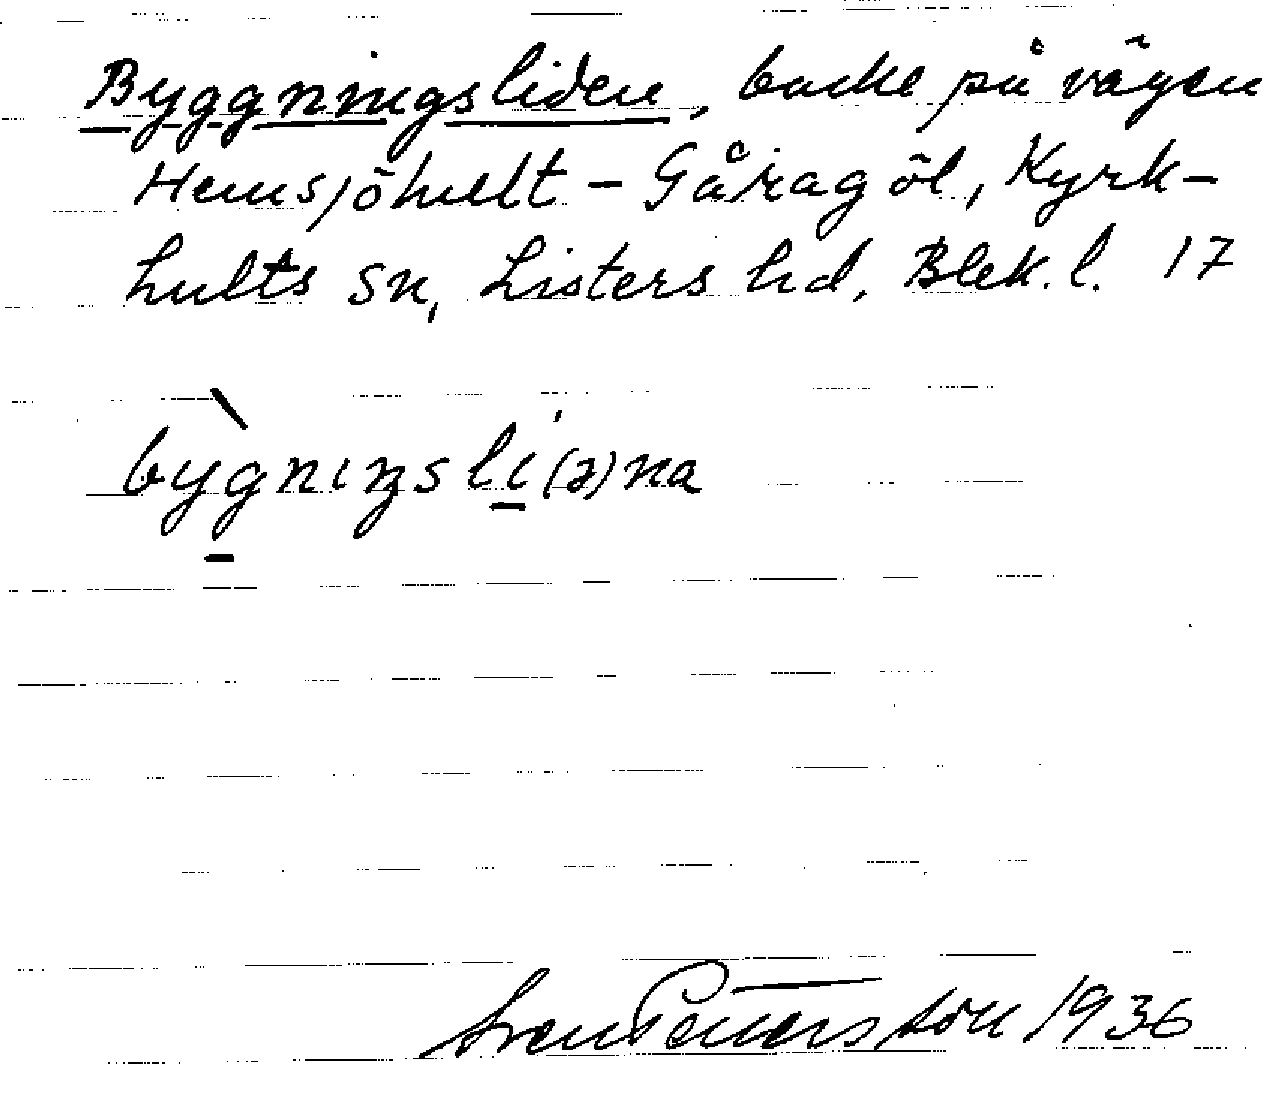 Byggningsliden, backe på vägen
Hemsjöhult - Gåragöl, Kyrk-
hults sn, Listers hd, Blek. l. 17
bỳgnıŋslı́(ə)na
Sven Pettersson 1936